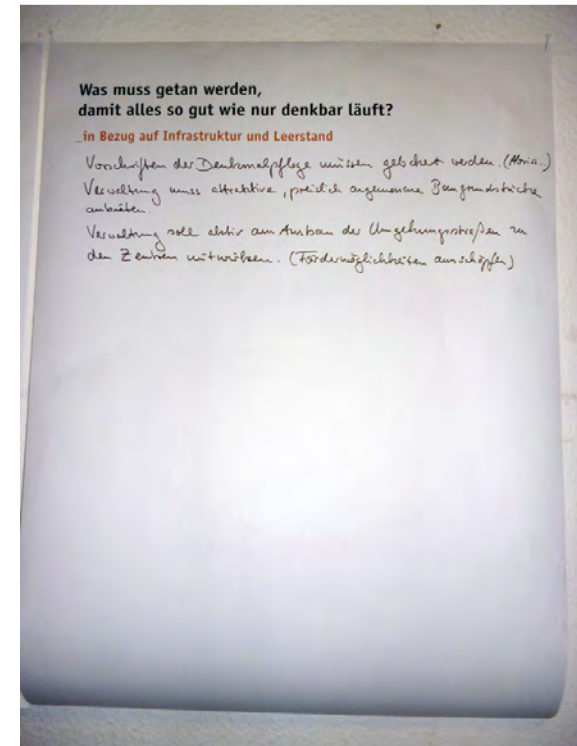 Was muss getan werden,
damit alles so gut wie nur denkbar läuft?
_in Bezug auf Infrastruktur und Leerstand
Vorschriften der Denkmalpflege müssen gelockert werden. (Abriss..)
Verwaltung muss attraktive, preislich angemessene Baugrundstücke
anbieten.
Verwaltung soll aktiv am Ausbau der Umgehungsstraßen zu
den Zentren mitwirken. (Fördermöglichkeiten ausschöpfen)